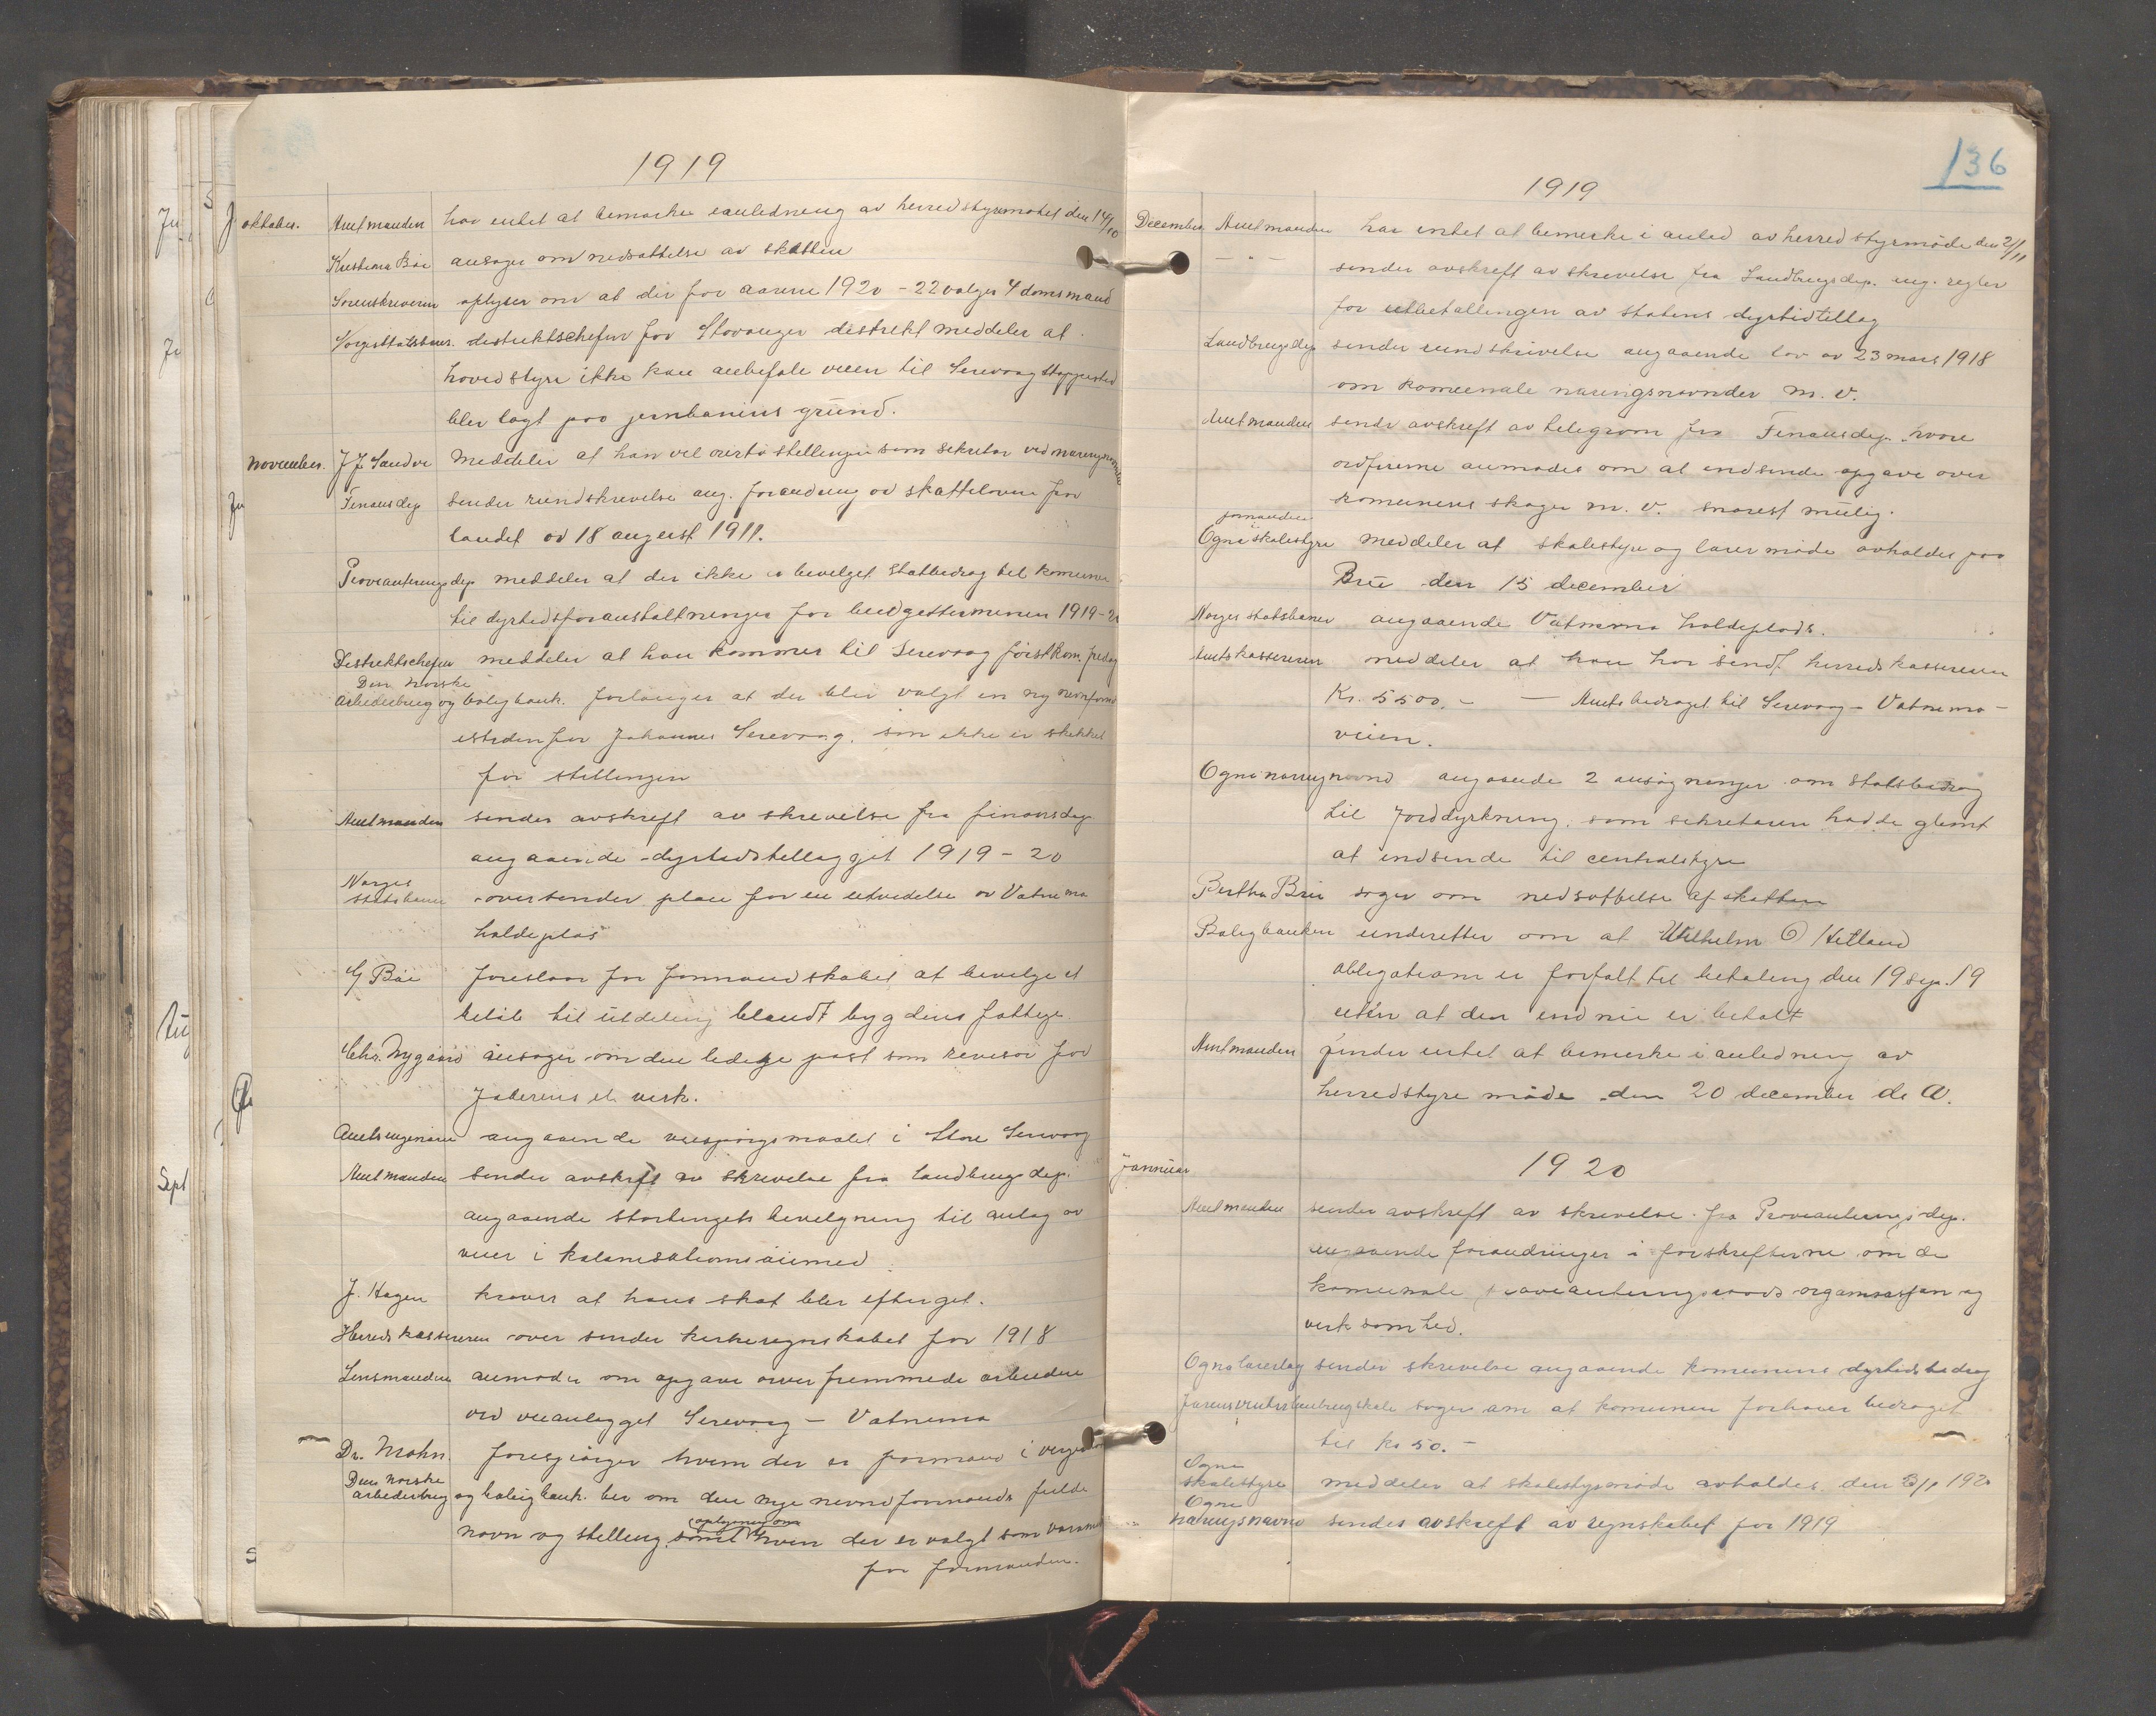 1919
oktober. Amtmanden har intet at bemærke i anledning av herredstyremøtet den 14/10
Kristina Bøe ansøger om nedsættelse av skatten
Sorenskriveren oplyser om at der for aarene 1920 - 22 vælges 4 domsmænd
Norges Statsbaner. distriktschefen for Stavanger distrikt meddeler at
hovedstyre ikke kan anbefale veien til Sirevaag stoppested
blir lagt paa jernbanens grund.
November. J. J. Sandve Meddeler at han vil overta stillingen som sekretær ved næringsnevnd
Finansdep sender rundskrivelse ang. forandring av skatteloven for
landet av 18 august 1911.
Provianteringsdep meddeler at der ikke er bevilget statbidrag til komunen
til dyrtidsforanstaltninger for budgetterminen 1919-20
Distriktschefen meddeler at han kommer til Sirevaag førstkom. fredag
Den Norske
Arbeiderbrug og boligbank. forlanger at der blir valgt en ny nevnform
istedenfor Johannes Sirevaag. som ikke er skikket
for stillingen
Amtmanden sender avskrift av skrivelse fra finansdep
angaaende dyrtidstillægget 1919 - 20
Norges
Statsbaner oversender plan for en utvidelse av Vatnemo
holdeplas
G Bøe foreslaar for formandskabet at bevilge et
beløb til utdeling blandt bygdens fattige
Chr. Nygaard ansøger om den ledige post som revisor for
Jæderens el. verk.
Amtsingeniøren angaaende veispørgsmaalet i Store Sirevaag
Amtmanden sender avskrift av skrivelse fra Landbrugsdep.
angaaende stortingets bevilgning til anlæg av
veier i kolonisationsøiemed
J. Hagen kræver at hans skat blir eftergit.
Herredskassereren over sender kirkeregnskabet for 1918
Lensmanden anmoder om opgave over fremmede arbeidere
ved veianlægget Sirevaag - Vatnemo
Dr. Mohn. forespørger hvem der er formand i
Den Norske
arbeiderbrug og boligbank. ber om den nye nevndformands fulde
navn og stilling, samt oplysning om hvem der er valgt som varamd
for formanden.
136
1919
December Amtmanden har intet at bemerke i anled av herredstyrmøde den 21/11
- " - sender avskrift av skrivelse fra Landbrugsdep. ang. regler
for utbetallingen av statens dyrtidtillæg
Landbrugsdep sender rundskrivelse angaaende lov av 23 mars 1918
om komunale næringsnevnder m. v.
Amtmanden sende avskrift av telegram fra Finansdep. hvori
ordførerne anmodes om at indsende opgave over
komunens skoger m. v. snarest mulig.
formanden i
Ogna skolestyre meddeler at skolestyre og lærermøde avholdes paa
Brue den 15 december
Norges statsbaner angaaende Vatnemo holdeplads.
Amtskassereren meddeler at han har sendt herredskassereren
Kr. 5500. - - Amtsbidraget til Sirevaag - Vatnemo -
veien.
Ogna næringsnevnd angaaende 2 ansøgninger om statsbidrag
til Jorddyrkning, som sekretæren hadde glemt
at indsende til centralstyre
Bertha Brue søger om nedsættelse af skatten
Boligbanken underetter om at Wilhelm O Hetland
obligation er forfalt til betaling den 19 sep. 19
uten at den endnu er betalt
Amtmanden finder intet at bemerke i anledning av
herredstyre møde den 20 december d. A.
1920
Januar
Amtmanden sender avskrift av skrivelse fra Provianteringsdep.
angaaende forandringer i forskrifterne om de
komunale provianteringsraads organisasjon og
virksomhed.
Ogna lærerlag sender skrivelse angaaende komunens dyrtidsbidrag
søger om at komunen forhøier bidraget
til kr 50. -
Ogna
skolestyre meddeler at skolestyremøde avholdes den 3/1 1920
Ogna
næringsnævnd sender avskrift av regnskabet for 1919